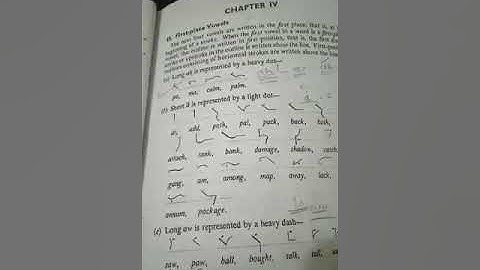 CHAPTER IV
First-place Vowels
The next four vowels are written in the first place, that is, at the
beginning of a stroke. When the first vowel in a word is a first-place
vowel, the outline is written in first position, that is, the first
upstroke in the outline is written above the line.
outlines consisting of horizontal strokes are written above the line
Long ah is represented by a heavy dot—
pa, ma, calm, palm.
Short ă is represented by a light dot—
at, add, pal, pack, back, bath,
attack, tank, bank, damage, shadow, catch,
gang, am, among, map, away, lack,
annum, package.
(c) Long aw is represented by a heavy dash—
saw, paw, ball, bought, talk, tall,